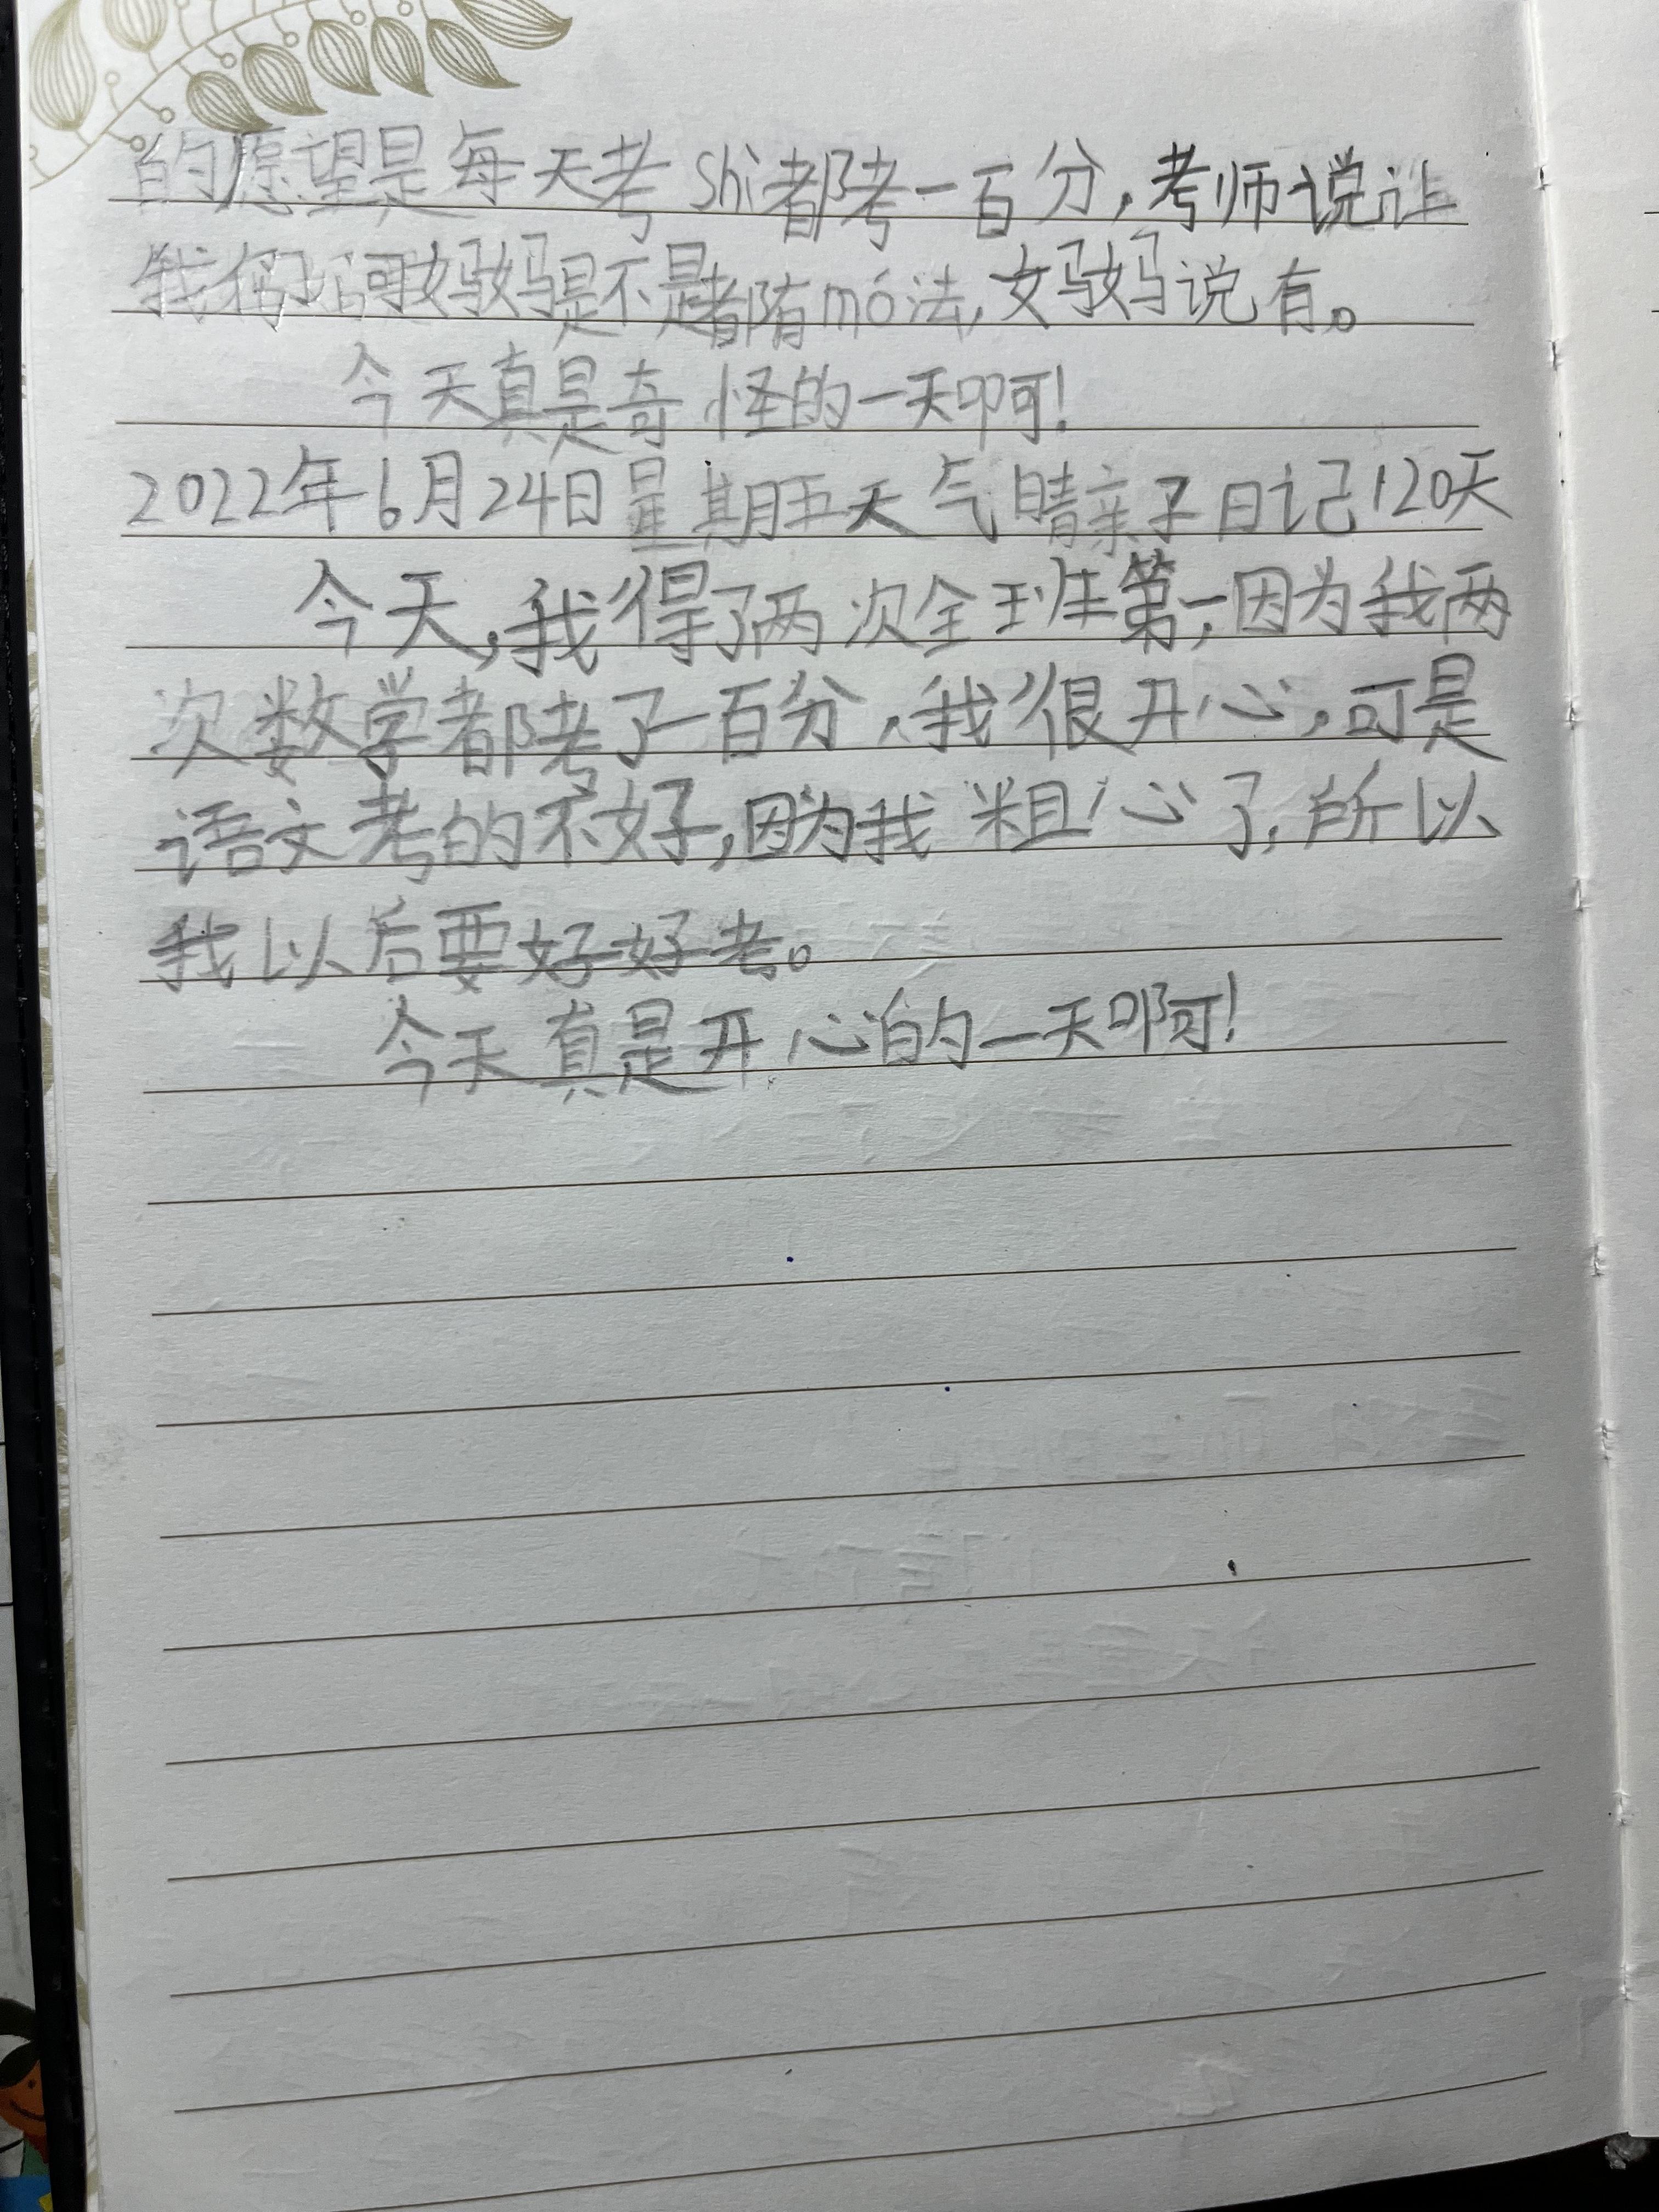 的愿望是每天考shi都考一百分，考师说让
我们问妈妈是不是都有mó法，妈妈说有。
今天真是奇怪的一天啊！
2022年6月24日星期五天气晴亲子日记120天
今天，我得了两次全班第一，因为我两
次数学都考了一百分，我很开心，可是
语文考的不好，因为我粗心了，所以
我以后要好好考。
今天真是开心的一天啊！